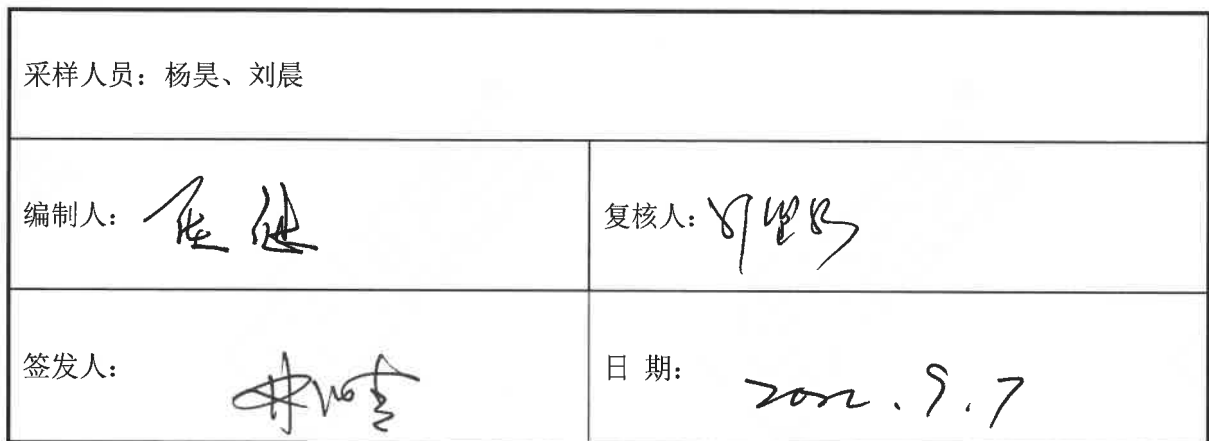 采样人员：杨昊、刘晨
编制人：
复核人：
签发人：
日 期：2022.9.7